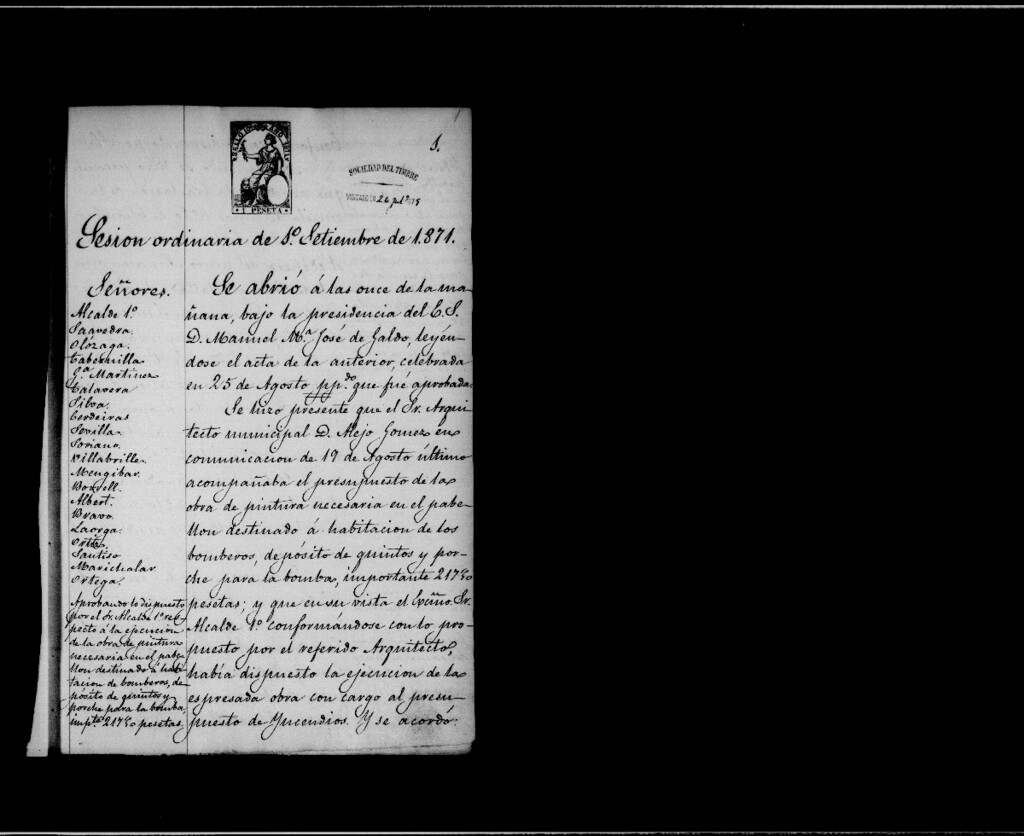 1.
SELLO 10º AÑO 1871
1 PESETA
SOCIEDAD DEL TIMBRE
Sesion ordinaria de 1º Setiembre de 1.871.
Señores.
Alcalde 1º
Saavedra.
Olózaga.
Tabernilla
Gª Martinez
Talavera
Silva.
Cerdeiras
Sevilla.
Soriano.
Villabrille.
Mengibar.
Borrell.
Albert.
Bravo.
Laorga.
Ortiz.
Santiso
Marichalar
Ortega.
Aprobando lo dispuesto
por el Sr. Alcalde 1º res-
pecto á la ejecucion
de la obra de pintura
necesaria en el pabe-
llon destinado á habi-
tacion de bomberos, de-
pósito de quintos y
porche para la bomba,
impte 217'50 pesetas.
Se abrió á las once de la ma-
ñana, bajo la presidencia del E. S.
D. Manuel Mª José de Galdo, leyén-
dose el acta de la anterior, celebrada
en 25 de Agosto pp.do que fué aprobada.
Se hizo presente que el Sr. Arqui-
tecto municipal D. Alejo Gomez en
comunicacion de 19 de Agosto último
acompañaba el presupuesto de la
obra de pintura necesaria en el pabe-
llon destinado á habitacion de los
bomberos, depósito de quintos y por-
che para la bomba, importante 217'50
pesetas; y que en su vista el Excmo. Sr.
Alcalde 1º conformandose con lo pro-
puesto por el referido Arquitecto,
había dispuesto la ejecucion de la
espresada obra con cargo al presu-
puesto de Yncendios. Y se acordó: